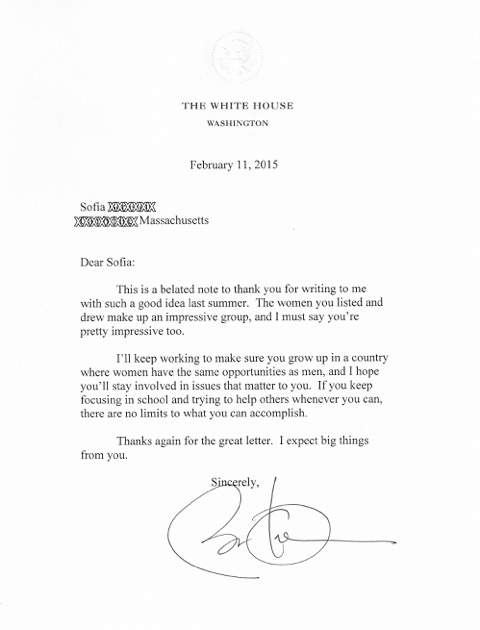 THE WHITE HOUSE
WASHINGTON
February 11, 2015
Sofia
Massachusetts
Dear Sofia:
This is a belated note to thank you for writing to me
with such a good idea last summer. The women you listed and
drew make up an impressive group, and I must say you're
pretty impressive too.
I'll keep working to make sure you grow up in a country
where women have the same opportunities as men, and I hope
you'll stay involved in issues that matter to you. If you keep
focusing in school and trying to help others whenever you can,
there are no limits to what you can accomplish.
Thanks again for the great letter. I expect big things
from you.
Sincerely,